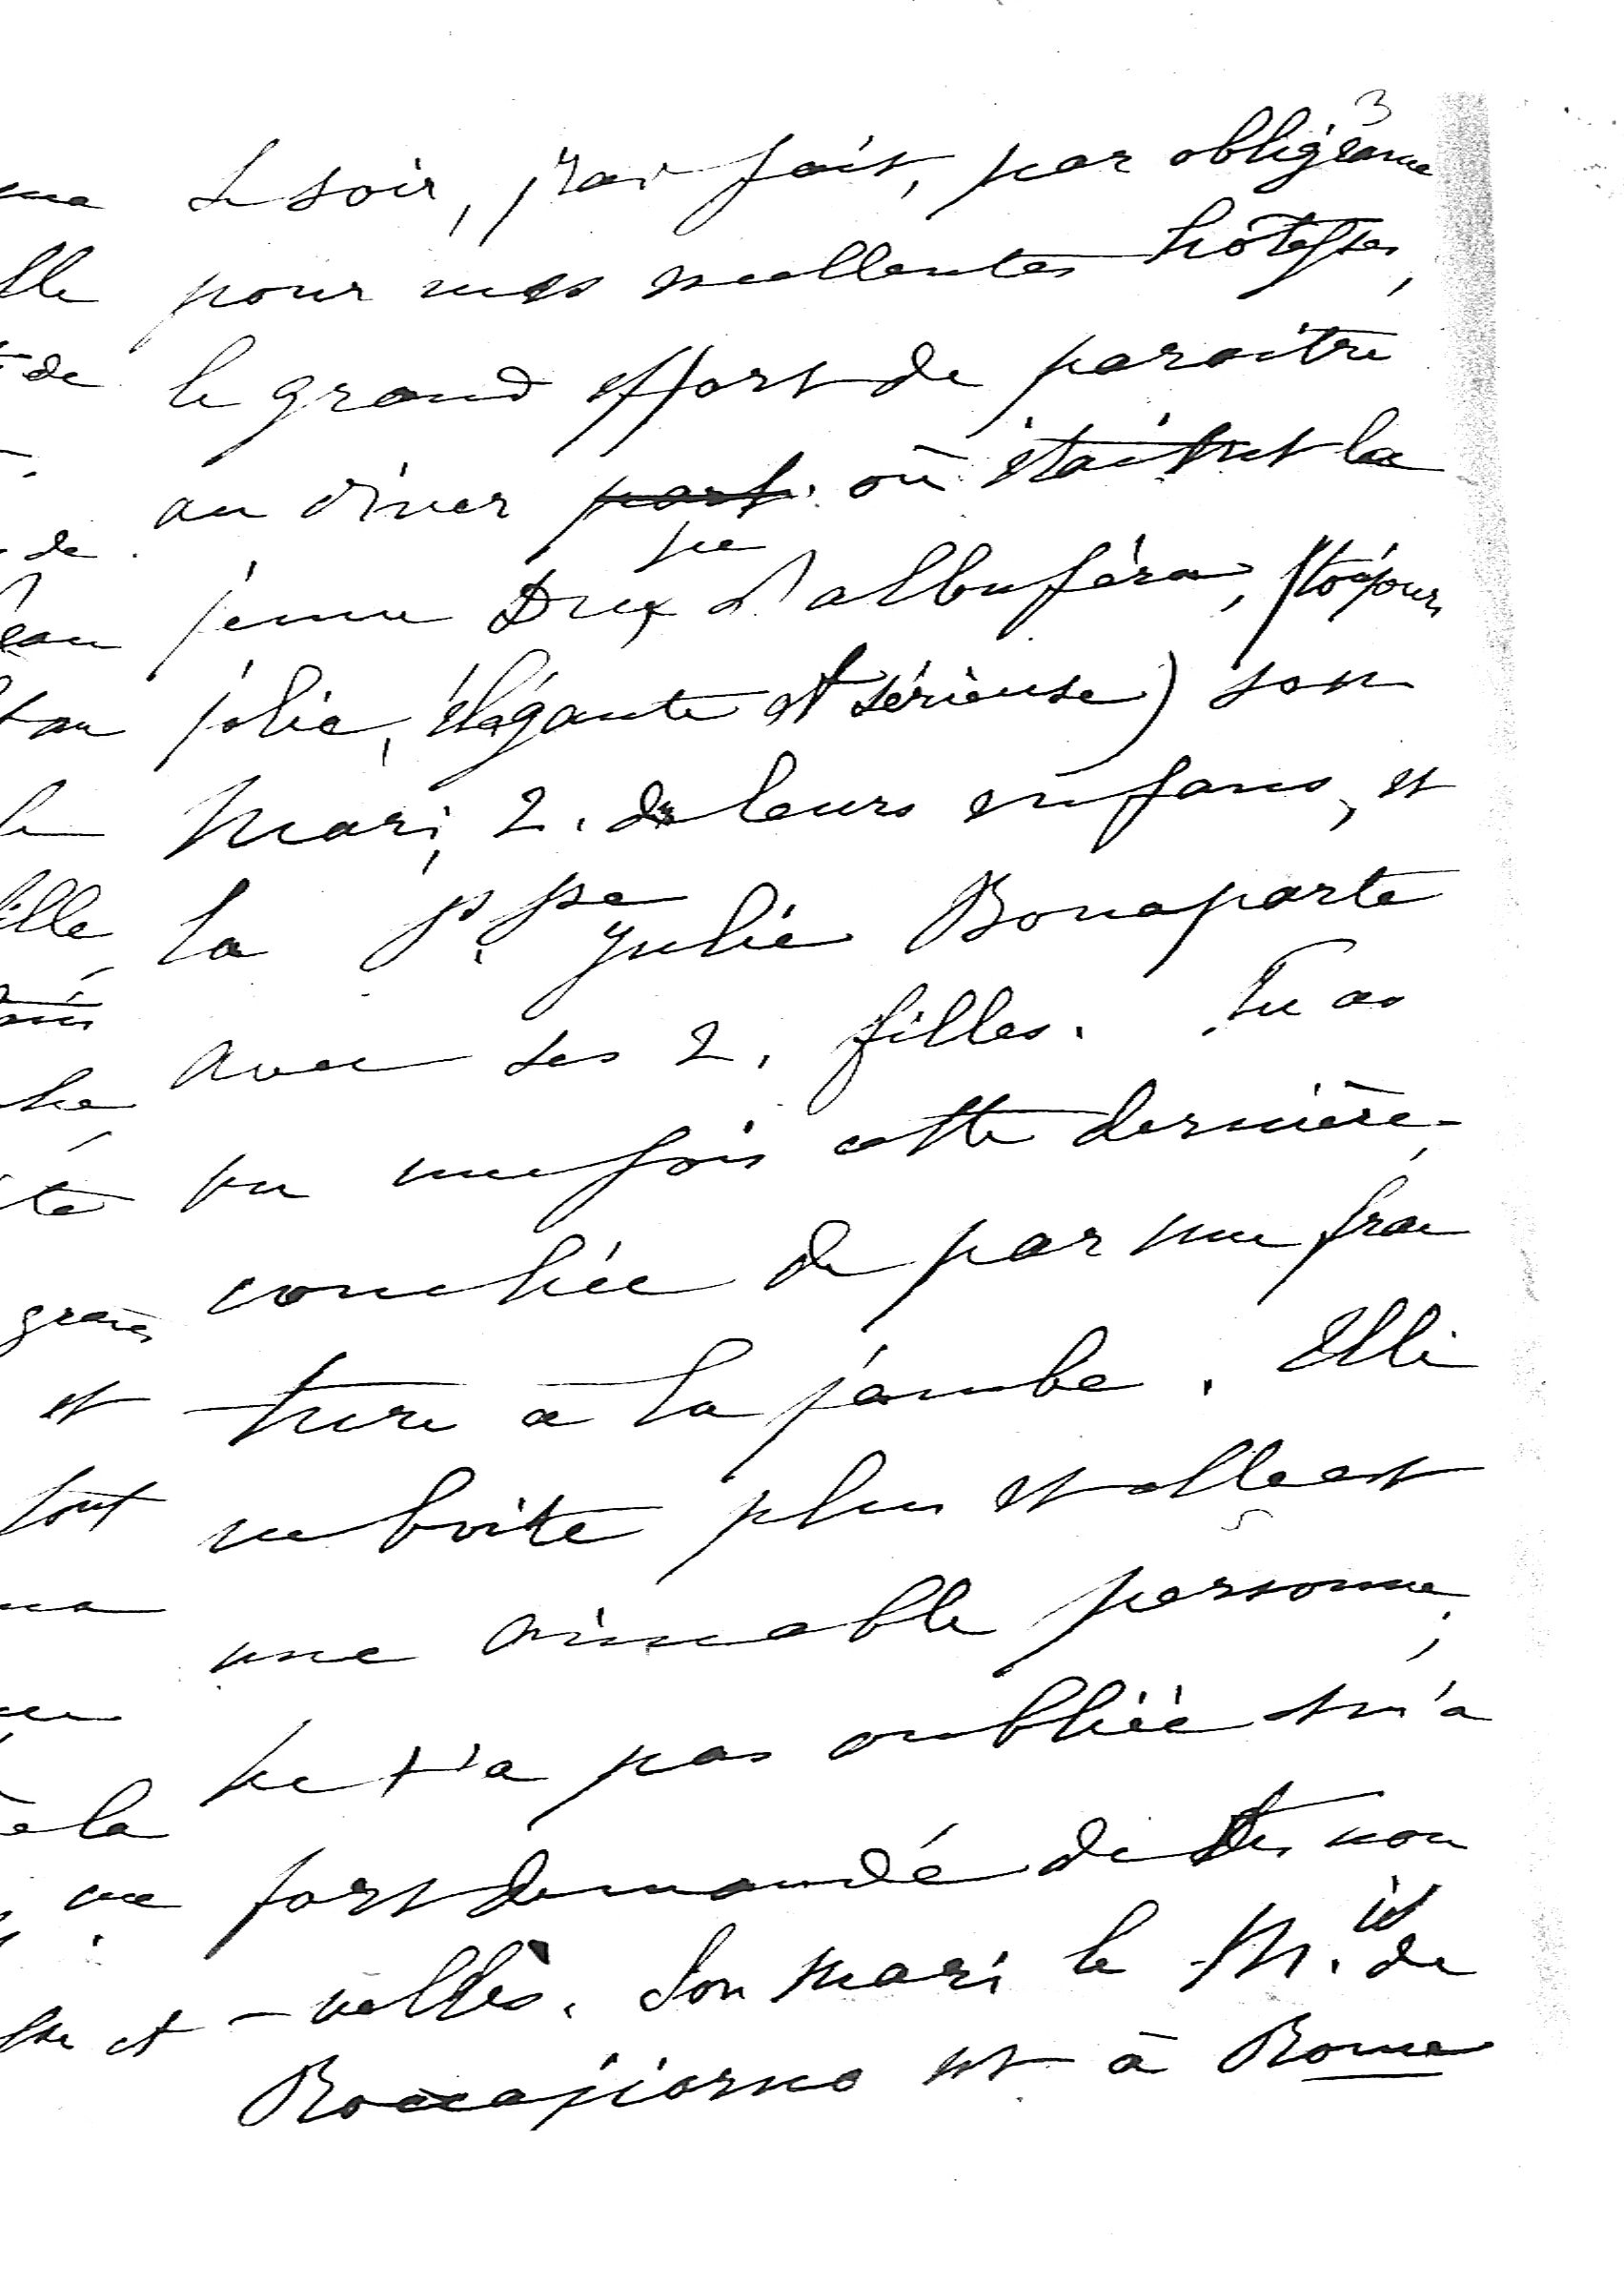 3
Le soir, j'ai fait, par obligeance
pour mes excellentes hôtesses,
le grand effort de paraître
au diner où étaient la
jeune Dsse d'albuféra, (toujours
jolie, élégante et sérieuse) son
mari, 2. de leurs enfans, et
la Psse Julie Bonaparte
avec ses 2. filles. Tu as
vu une fois cette dernière
couchée de par une frac
ture à la jambe. Elle
ne boite plus et elle est
une aimable personne,
ne t'a pas oubliée et m'a
fort demandé de tes nou
-velles. Son mari le M.is de
Roccagiorno est à Rome